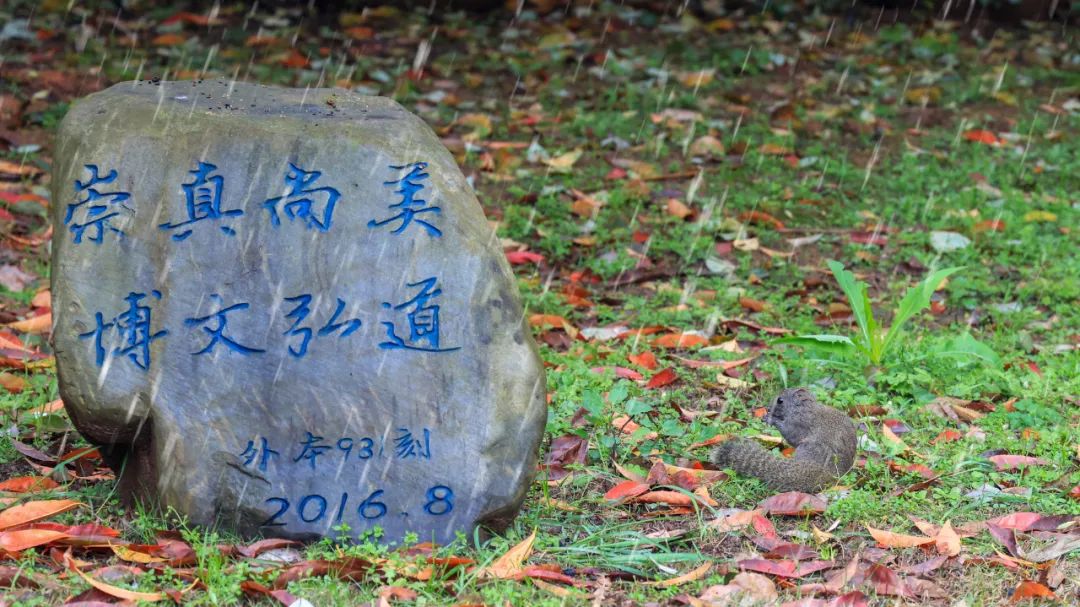 崇真尚美
博文弘道
外本931刻
2016.8